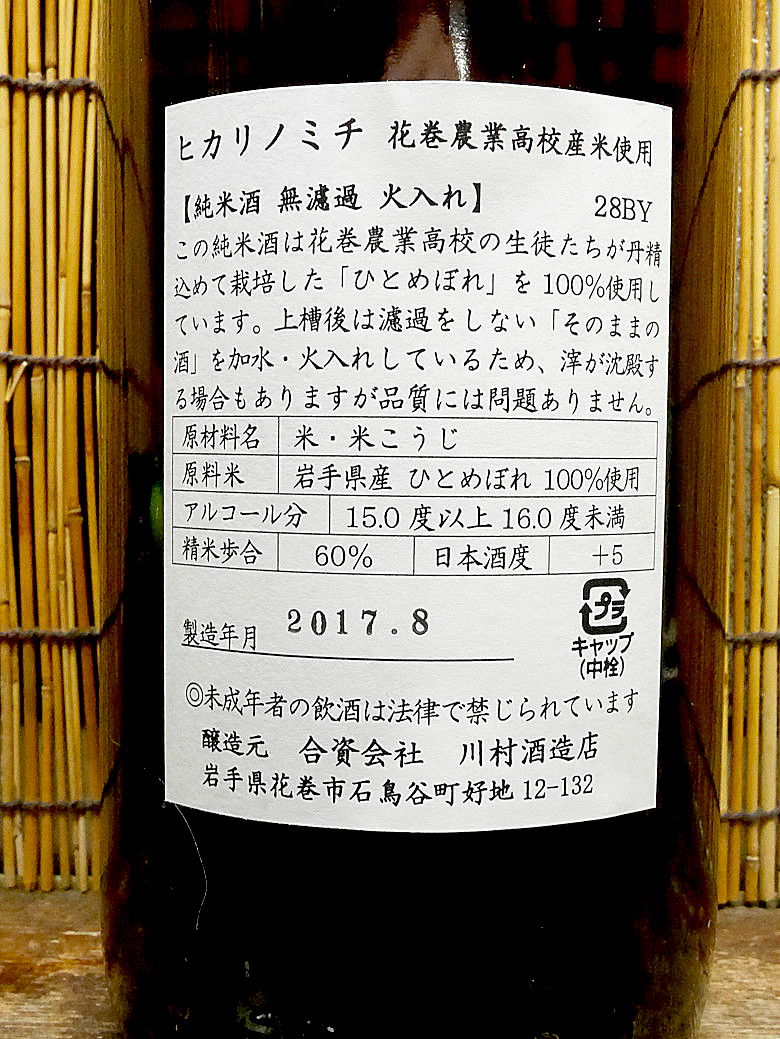 ヒカリノミチ 花巻農業高校産米使用
【純米酒 無濾過 火入れ】 28BY
この純米酒は花巻農業高校の生徒たちが丹精
込めて栽培した「ひとめぼれ」を 100%使用し
ています。上槽後は濾過をしない「そのままの
酒」を加水・火入れしているため、滓が沈殿す
る場合もありますが品質には問題ありません。
原材料名 米・米こうじ
原料米 岩手県産 ひとめぼれ 100%使用
アルコール分 15.0 度以上 16.0 度未満
精米歩合 60% 日本酒度 +5
製造年月 2017.8
プラ
キャップ
(中栓)
◎未成年者の飲酒は法律で禁じられています
醸造元 合資会社 川村酒造店
岩手県花巻市石鳥谷町好地 12-132